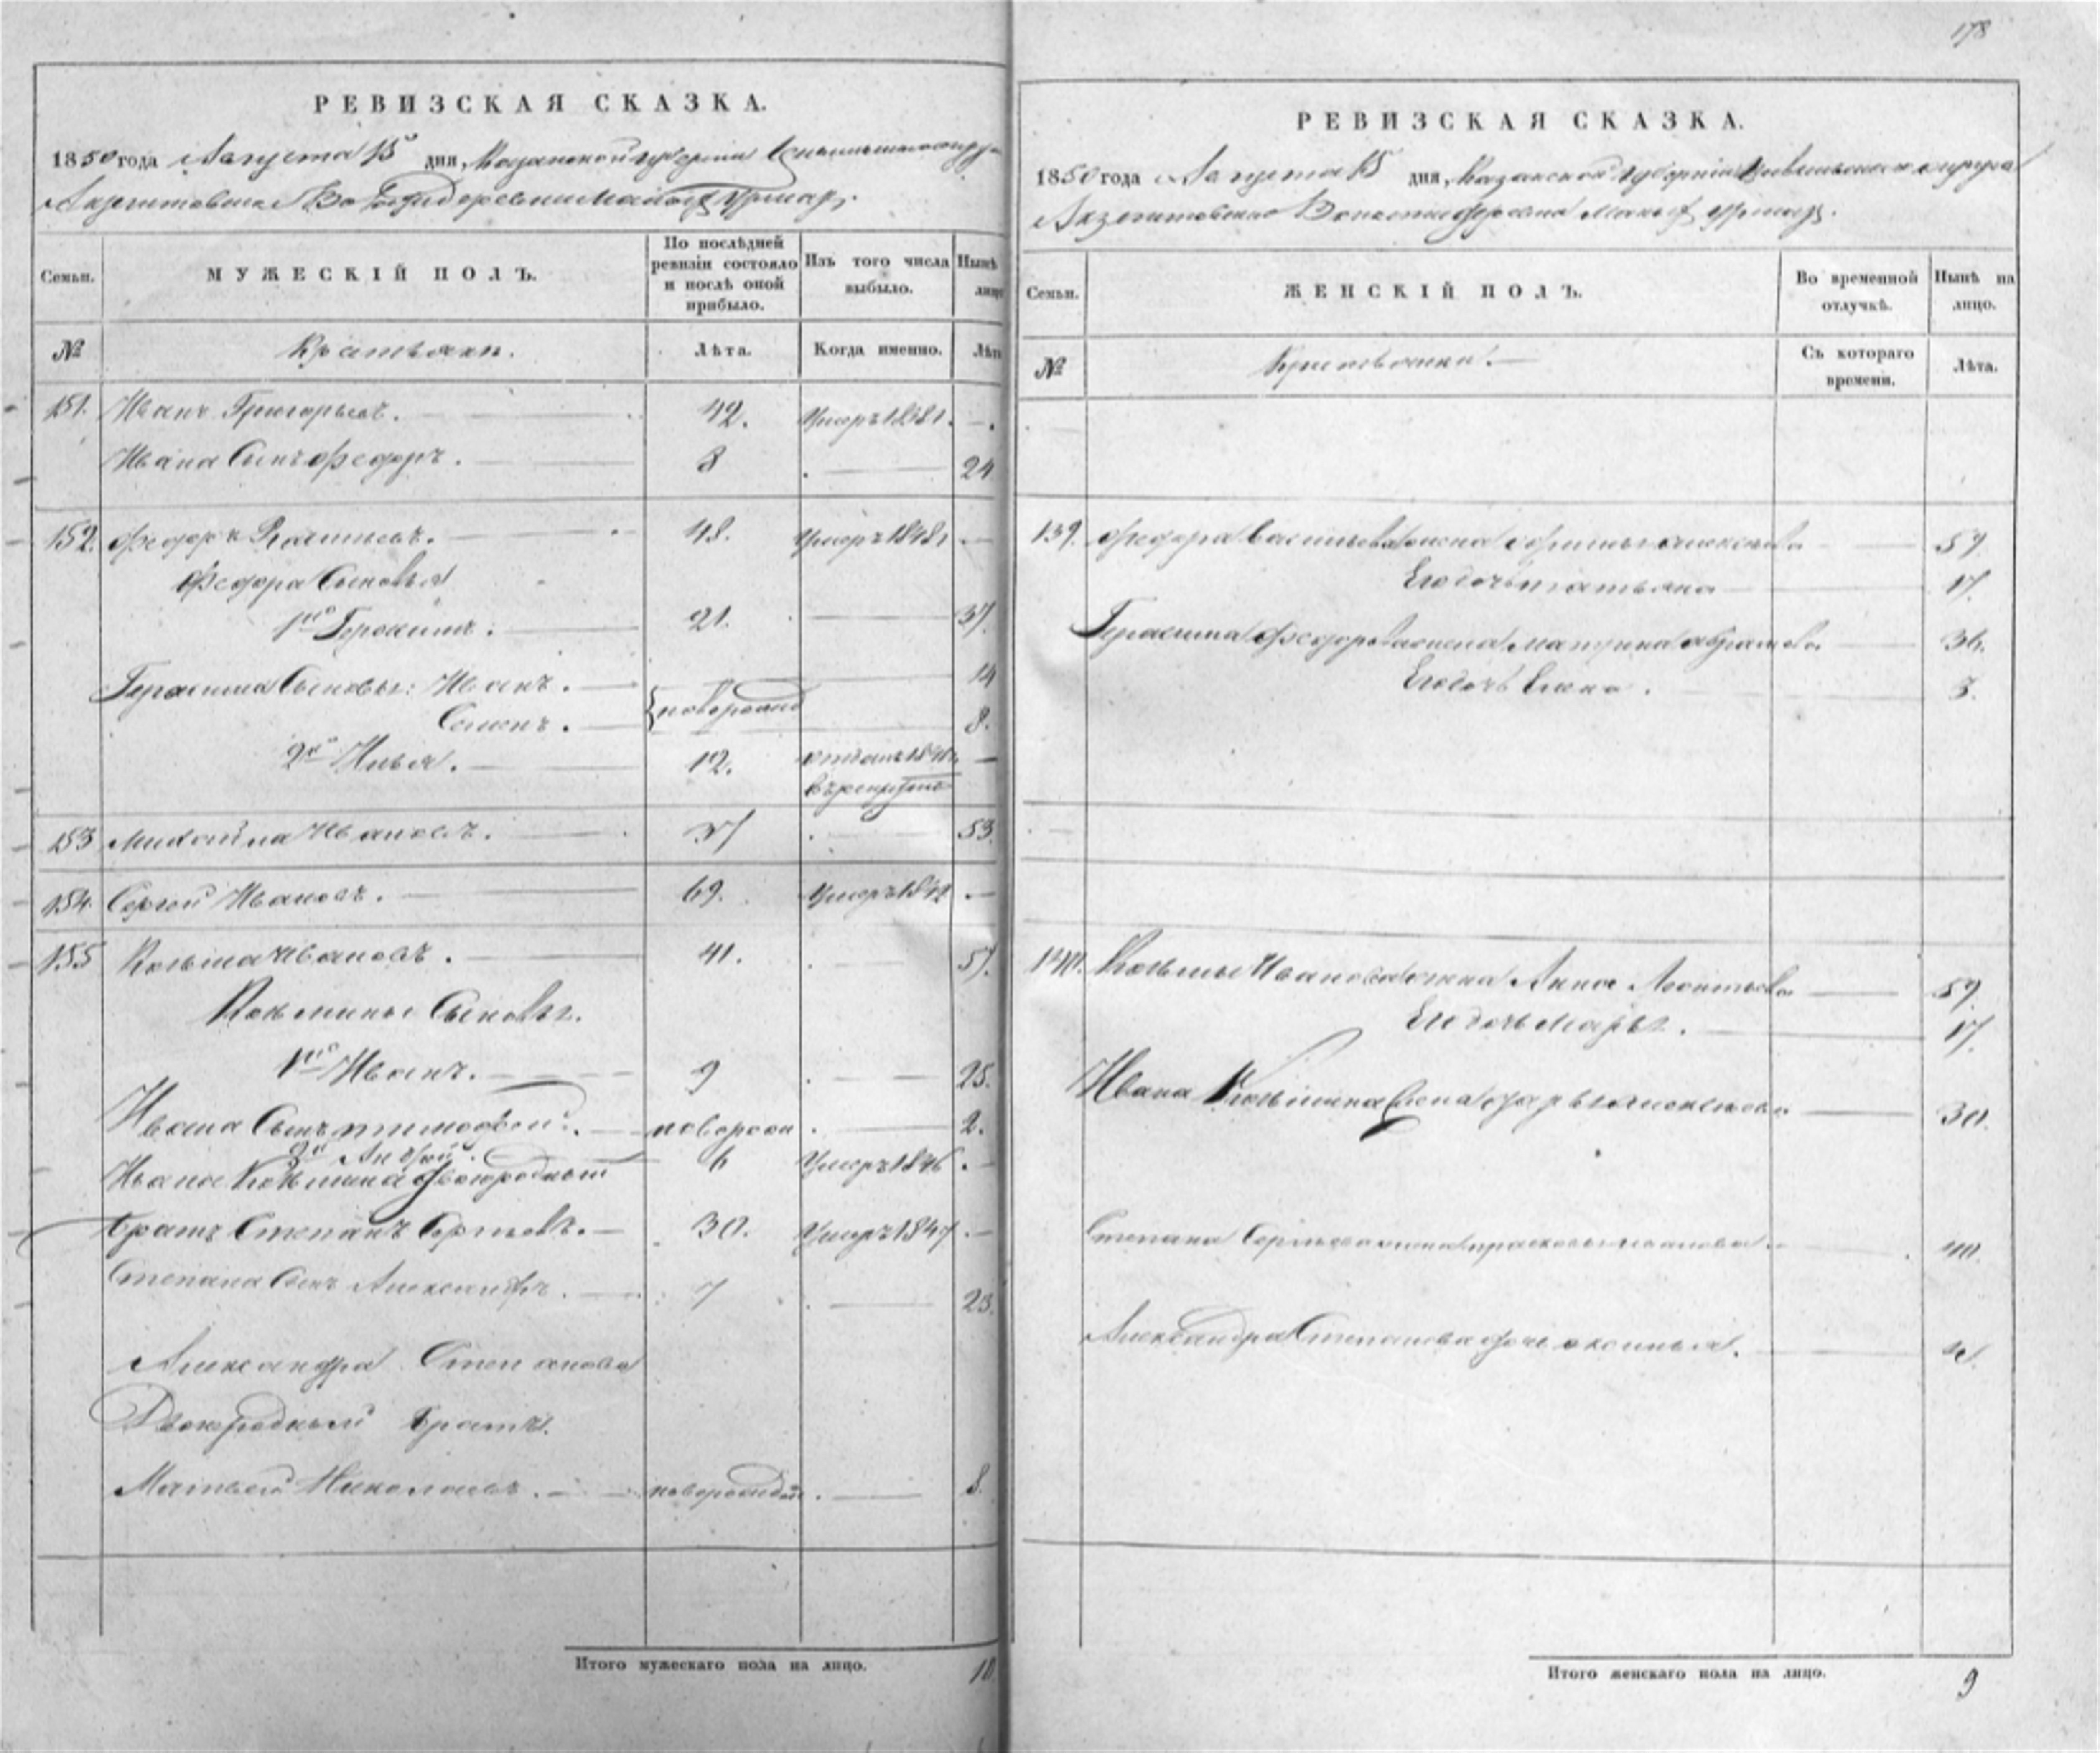 178
РЕВИЗСКАЯ СКАЗКА.
1850 года Августа 15 дня, Казанской губернии округа
деревни Малых
Семьи. МУЖЕСКІЙ ПОЛЪ. По послѣдней ревизіи состояло и послѣ оной прибыло. Изъ того числа выбыло. Нынѣ лицо
№ Крестьяне. Лѣта. Когда именно. Лѣт
151. Иванъ Григорьевъ. 42. Умеръ 1831. —
Ивана Сынъ Федоръ. 8 — 24
152. Федоръ 48. Умеръ 1848 —
Федора Сыновья
1й Герасимъ. 21. — 37.
Герасима Сыновья: Иванъ. новорожд 14
Семенъ. 8.
2й Илья. 12. отданъ —
въ рекруты
153 Михайла Ивановъ. 37 — 53.
154. Сергей Ивановъ. 69. Умеръ 1842 —
155 Козьма Ивановъ. 41. — 57.
Козьмины Сыновья.
1й Иванъ. 9 — 25.
Ивана Сынъ Тимофей. новорожд — 2.
2й Андрей. 6 Умеръ 1846 —
Ивана Козьмина двоюродный
братъ Степанъ Сергеевъ. 30. Умеръ 1847 —
Степана Сынъ Александръ. 7 — 23.
Александра Степанова
Двоюродный братъ.
Матвей Николаевъ. новорожден — 8.
Итого мужескаго пола на лицо. 10
РЕВИЗСКАЯ СКАЗКА.
1850 года Августа 15 дня, Казанской губерніи Цивильскаго округа
Волости деревни Малых
Семьи. ЖЕНСКІЙ ПОЛЪ. Во временной отлучкѣ. Нынѣ на лицо.
№ Крестьянки. — Съ котораго времени. Лѣта.
139. Федора Васильева жена — 59
Его дочь Татьяна — 17.
Герасима Федорова жена Матрена Абрамова — 36.
Его дочь Елена. — 3.
140. Козьмы Иванова жена Анна Леонтьева — 59.
Его дочь Марья. — 17.
Ивана Козьмина жена Дарья Алексеева — 30.
Степана Сергеева жена Прасковья Иванова — 40.
Александра Степанова дочь Аксинья. — 4.
Итого женскаго пола на лицо. 9